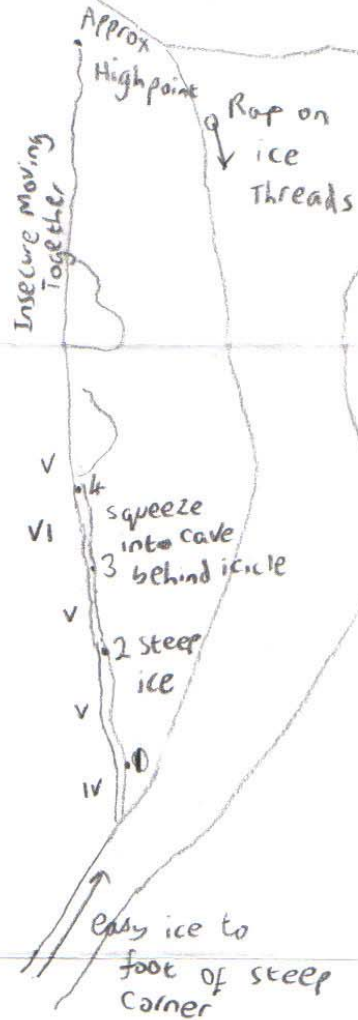 Approx
Highpoint
Rap on
ice
Threads
Insecure Moving
Together
V
4
squeeze
into cave
behind icicle
VI
3
V
2 steep
ice
V
1
IV
easy ice to
foot of steep
corner